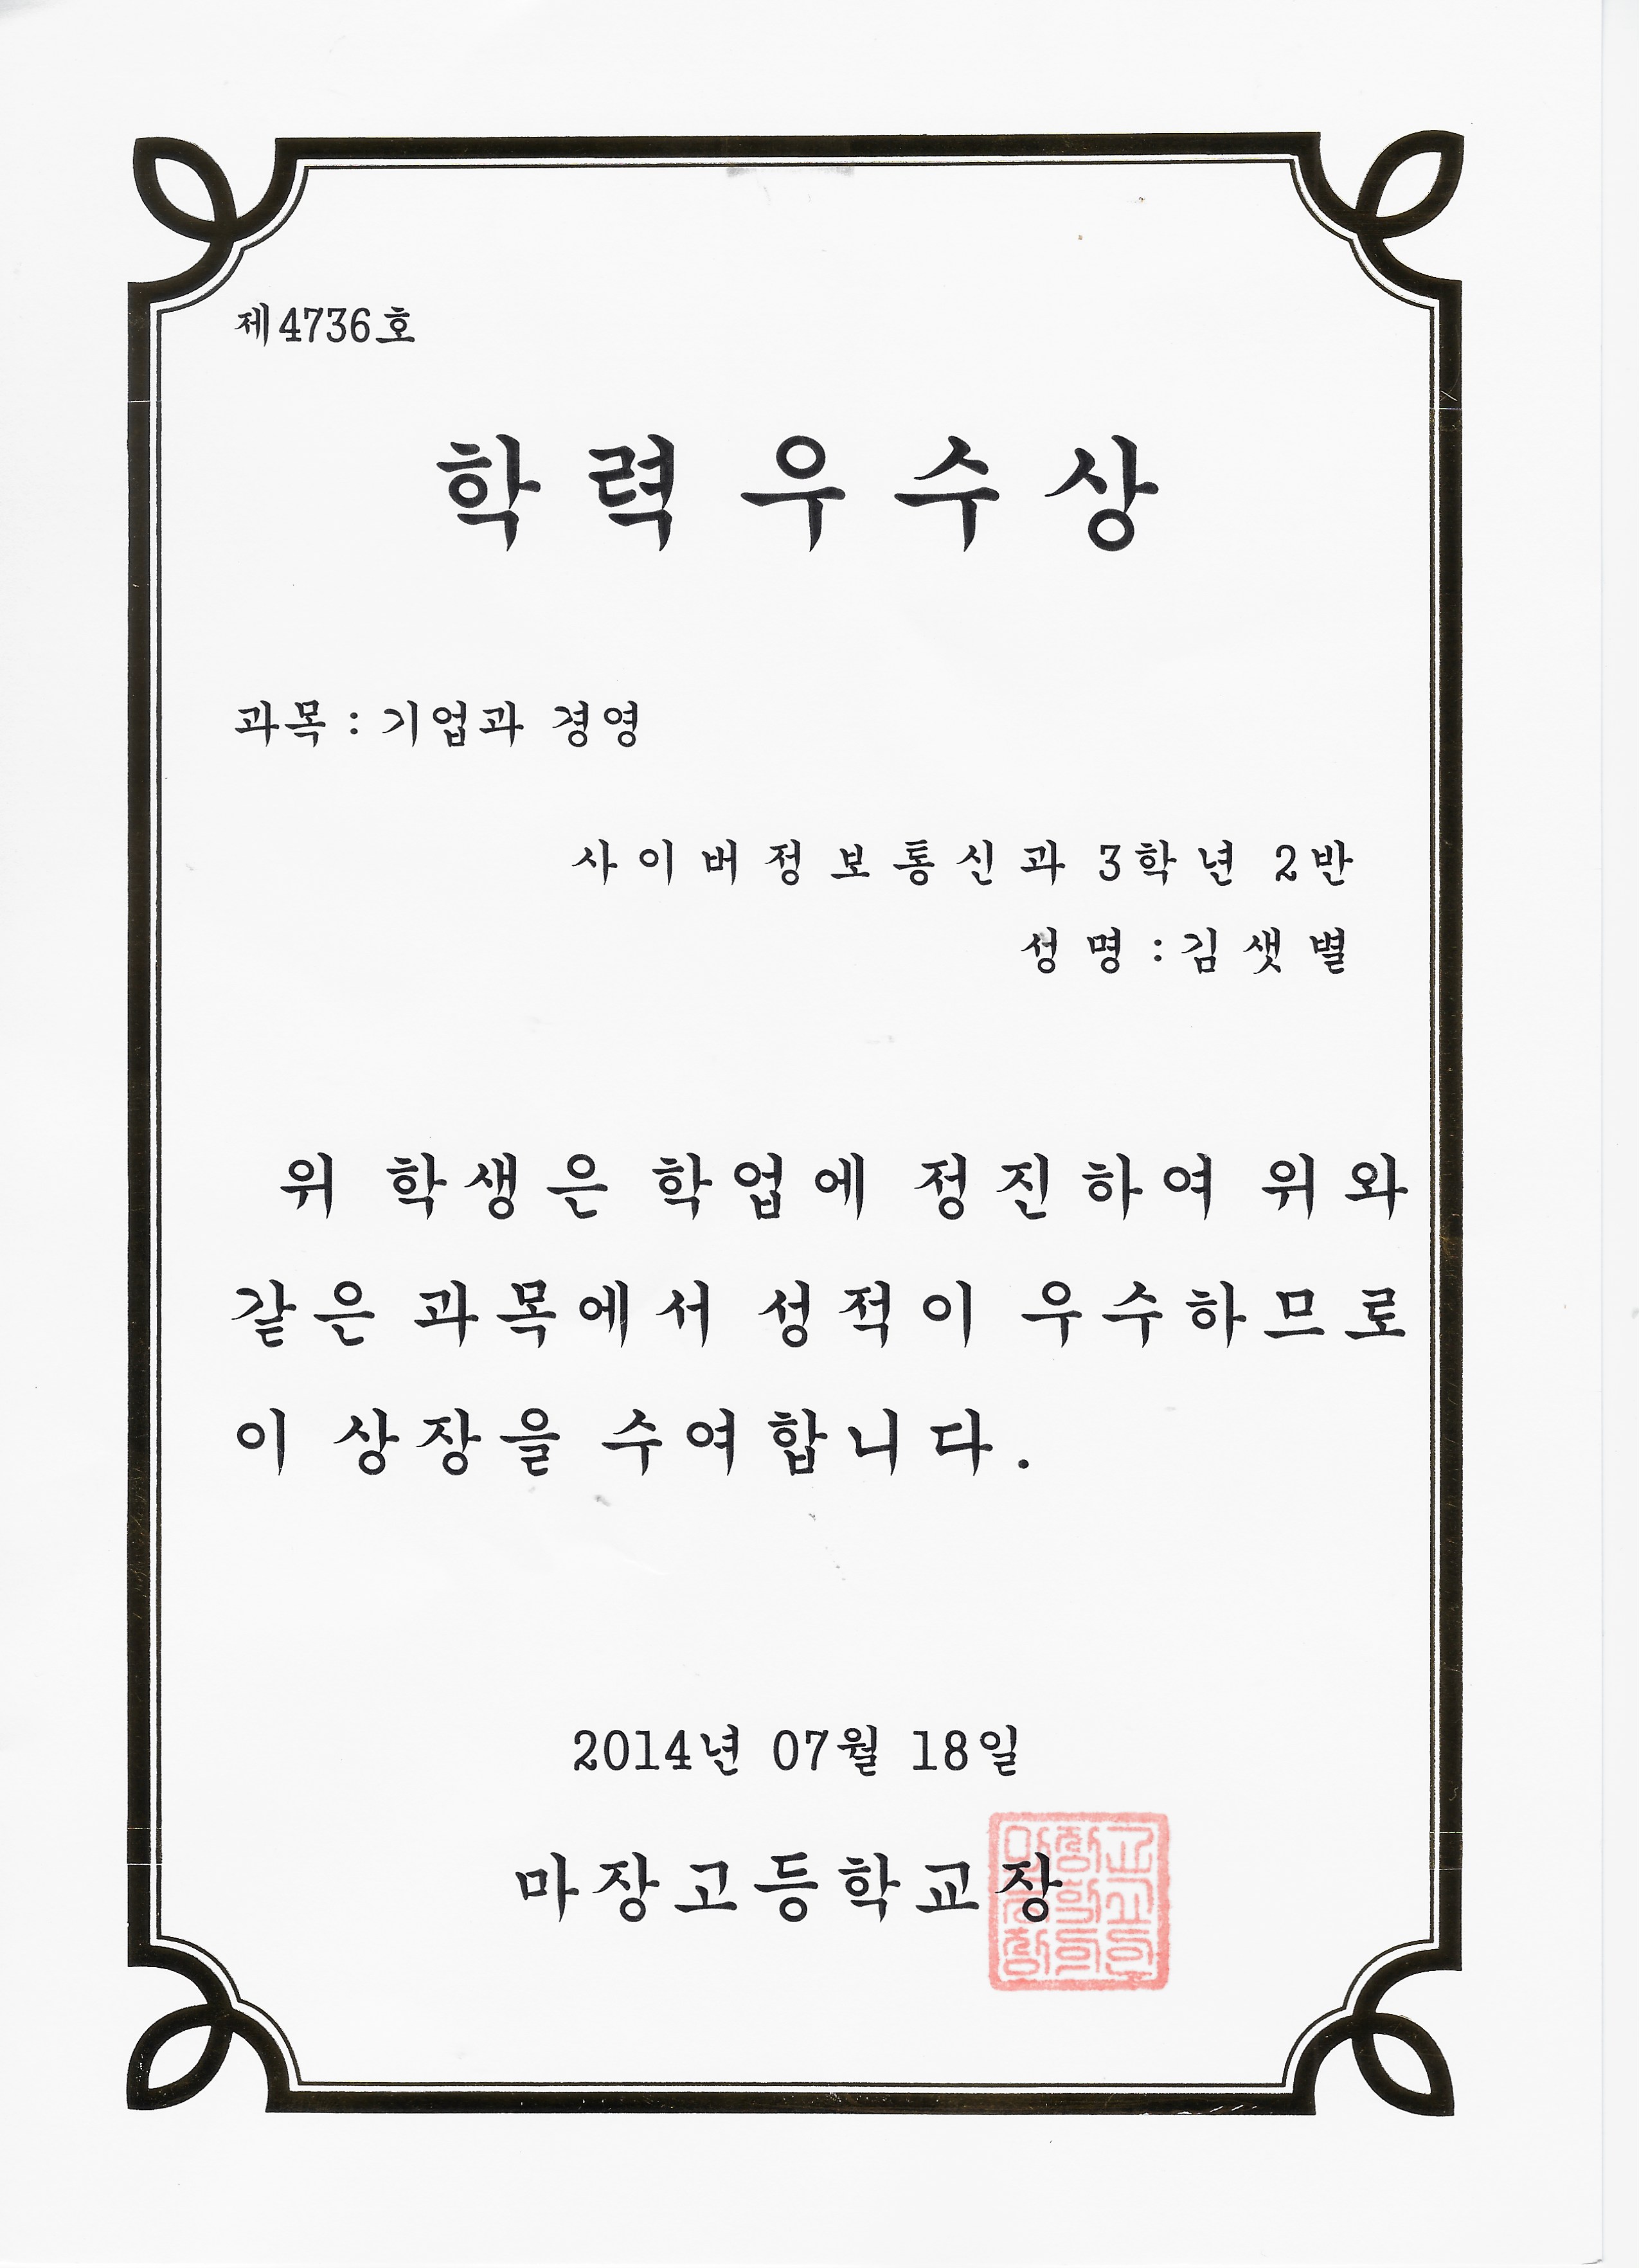 제4736호
학력우수상
과목 : 기업과 경영
사이버정보통신과 3학년 2반
성명 : 김샛별
위 학생은 학업에 정진하여 위와
같은 과목에서 성적이 우수하므로
이 상장을 수여합니다.
2014년 07월 18일
마장고등학교장